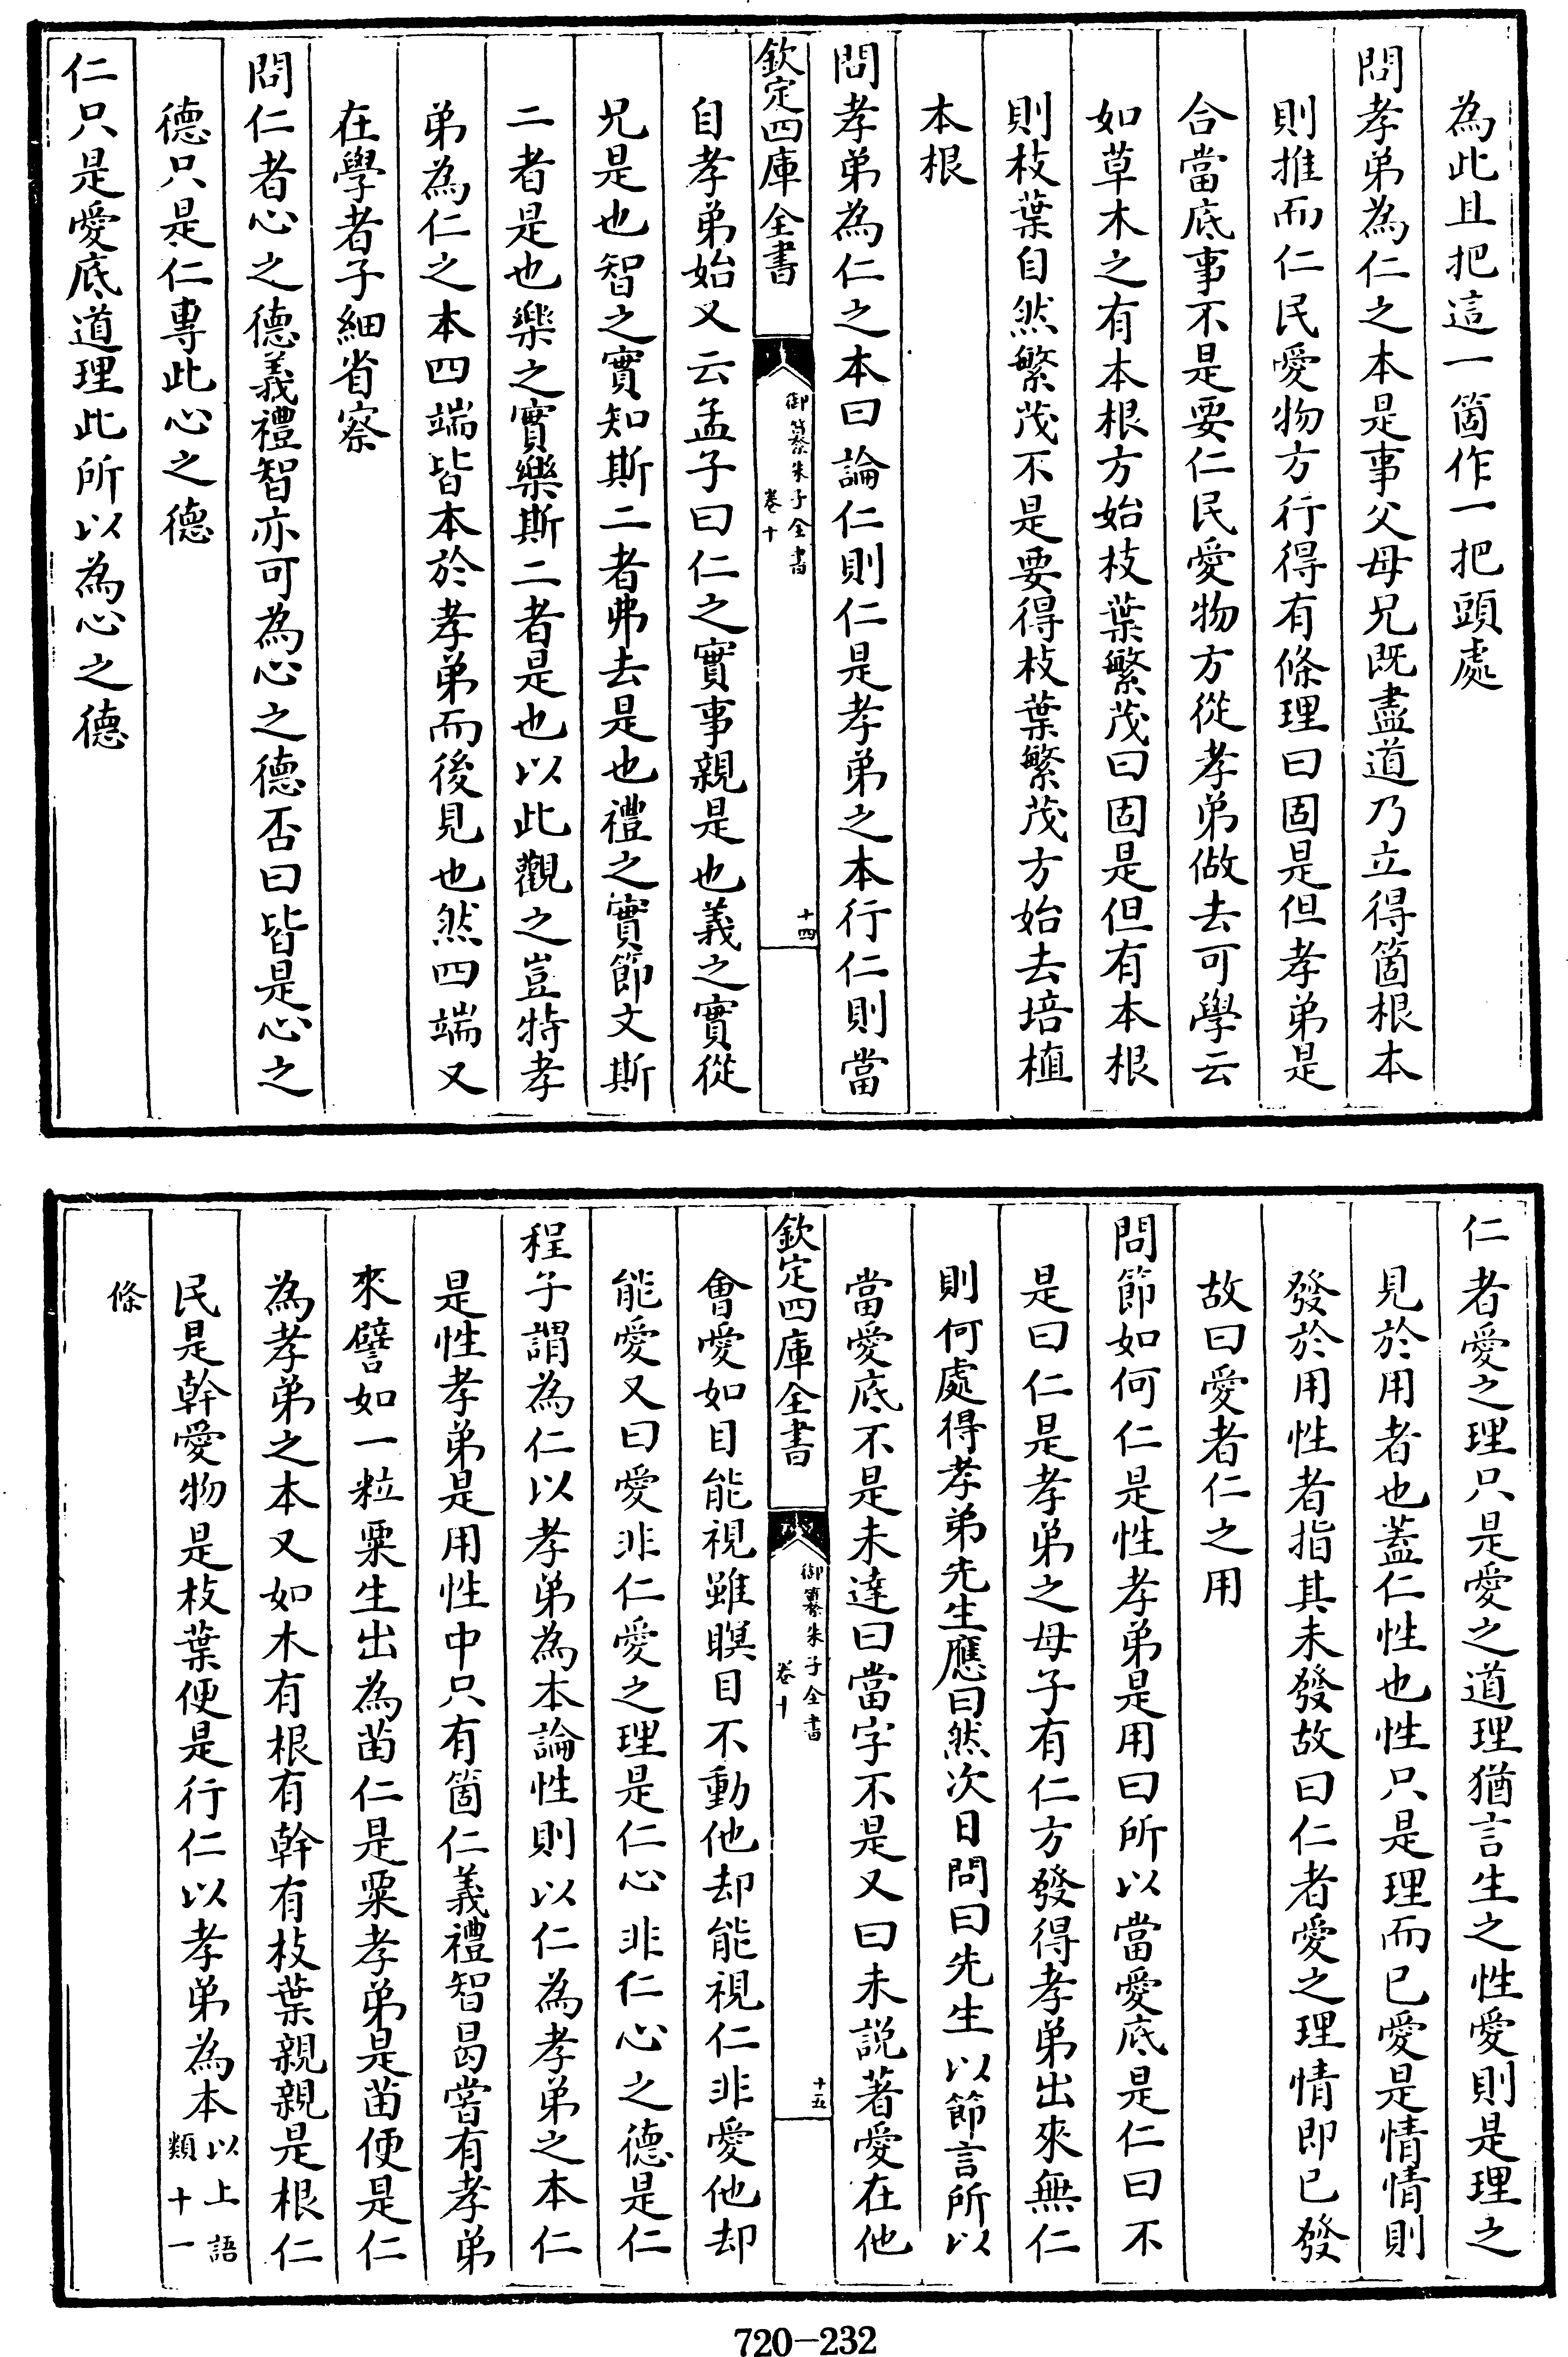 為此且把這一箇作一把頭處
問孝弟為仁之本是事父母兄既盡道乃立得箇根本
則推而仁民愛物方行得有條理曰固是但孝弟是
合當底事不是要仁民愛物方從孝弟做去可學云
如草木之有本根方始枝葉繁茂曰固是但有本根
則枝葉自然繁茂不是要得枝葉繁茂方始去培植
本根
問孝弟為仁之本曰論仁則仁是孝弟之本行仁則當
欽定四庫全書
御纂朱子全書
卷十
十四
自孝弟始又云孟子曰仁之實事親是也義之實從
兄是也智之實知斯二者弗去是也禮之實節文斯
二者是也樂之實樂斯二者是也以此觀之豈特孝
弟為仁之本四端皆本於孝弟而後見也然四端又
在學者子細省察
問仁者心之德義禮智亦可為心之德否曰皆是心之
德只是仁專此心之德
仁只是愛底道理此所以為心之德
仁者愛之理只是愛之道理猶言生之性愛則是理之
見於用者也蓋仁性也性只是理而已愛是情情則
發於用性者指其未發故曰仁者愛之理情即已發
故曰愛者仁之用
問節如何仁是性孝弟是用曰所以當愛底是仁曰不
是曰仁是孝弟之母子有仁方發得孝弟出來無仁
則何處得孝弟先生應曰然次日問曰先生以節言所以
當愛底不是未達曰當字不是又曰未說著愛在他
欽定四庫全書
御纂朱子全書
卷十
十五
會愛如目能視雖瞑目不動他却能視仁非愛他却
能愛又曰愛非仁愛之理是仁心非仁心之德是仁
程子謂為仁以孝弟為本論性則以仁為孝弟之本仁
是性孝弟是用性中只有箇仁義禮智曷嘗有孝弟
來譬如一粒粟生出為苗仁是粟孝弟是苗便是仁
為孝弟之本又如木有根有幹有枝葉親親是根仁
民是幹愛物是枝葉便是行仁以孝弟為本以上語
類十一
條
720-232